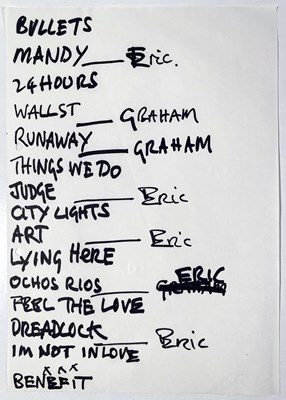 BULLETS
MANDY — Eric.
24 HOURS
WALL ST — GRAHAM
RUNAWAY — GRAHAM
THINGS WE DO
JUDGE — Eric
CITY LIGHTS
ART — Eric
LYING HERE
OCHOS RIOS — ERIC
FEEL THE LOVE
DREADLOCK — Eric
IM NOT IN LOVE
x x x
BENEFIT